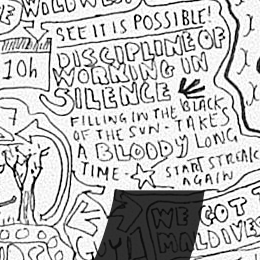 WILDWES
SEE IT IS POSSIBLE!
10h
DISCIPLINE OF
WORKING IN
SILENCE
FILLING IN THE BLACK
OF THE SUN - TAKES
A BLOODY LONG
TIME -
START STREAK
AGAIN
7
WE GOT T
MALDIVES
GUY!